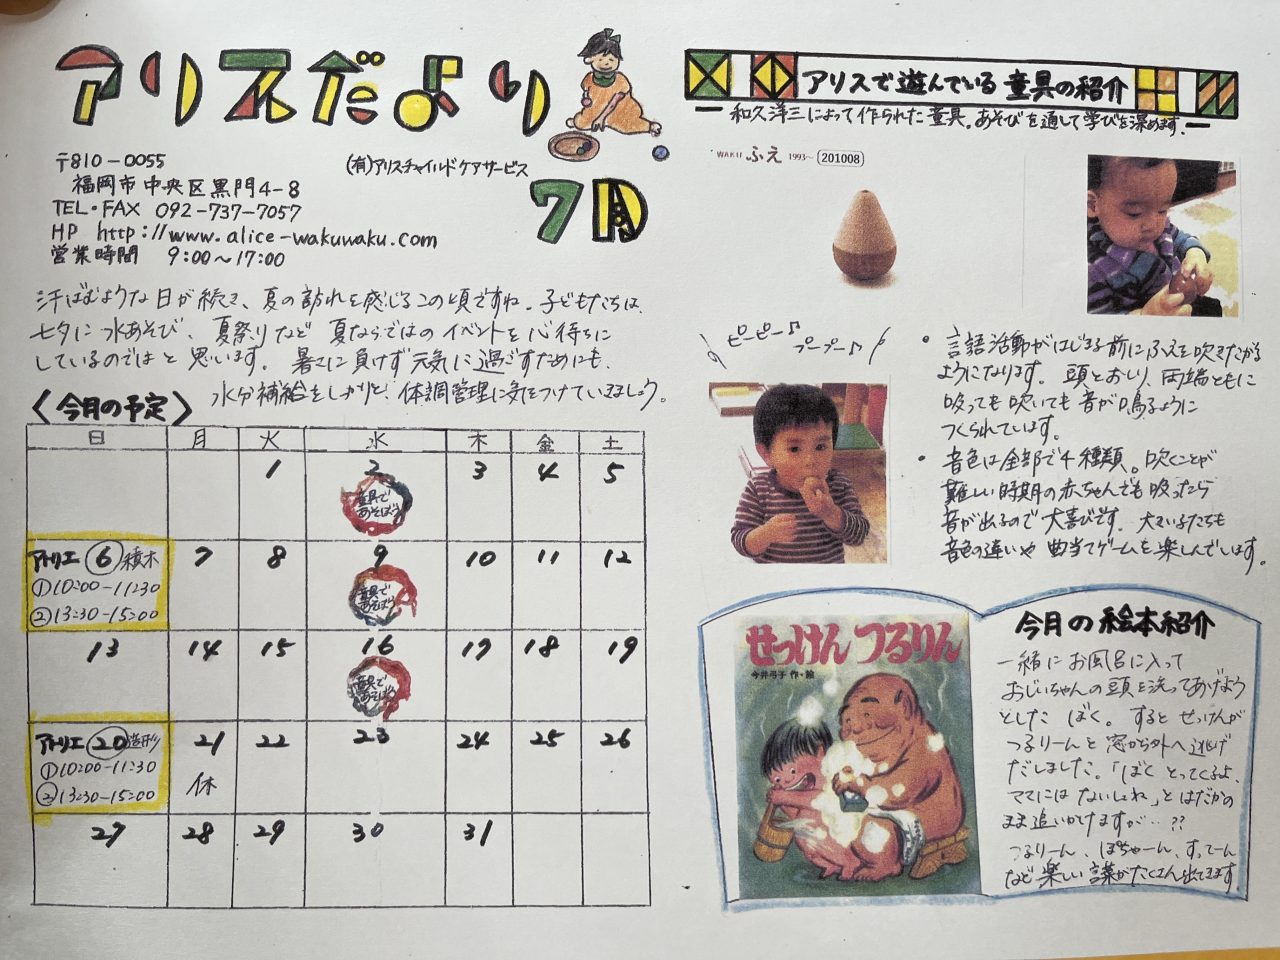 アリスだより
7月
〒810-0055
福岡市中央区黒門4-8
TEL・FAX 092-737-7057
HP http://www.alice-wakuwaku.com
営業時間 9:00〜17:00
(有)アリスチャイルドケアサービス
汗ばむような日が続き、夏の訪れを感じるこの頃ですね。子どもたちは、
七夕に水あそび、夏祭りなど夏ならではのイベントを心待ちに
しているのではと思います。暑さに負けず元気に過ごすためにも、
水分補給をしっかりと、体調管理に気をつけていきましょう。
〈今月の予定〉
日 月 火 水 木 金 土
1 2 3 4 5
童具で
あそぼう
アトリエ 6 積木 7 8 9 10 11 12
①10:00-11:30
②13:30-15:00
童具で
あそぼう
13 14 15 16 17 18 19
童具で
あそぼう
アトリエ 20 造形 21 22 23 24 25 26
①10:00-11:30
②13:30-15:00
休
27 28 29 30 31
アリスで遊んでいる童具の紹介
ー和久洋三によって作られた童具。あそびを通して学びを深めます。ー
WAKU ふえ 1993〜 201008
ピーピー♪
プープー♪
・言語活動がはじまる前にふえを吹きたがる
ようになります。頭とおしり、両端ともに
吸っても吹いても音が鳴るように
つくられています。
・音色は全部で4種類。吹くことが
難しい時期の赤ちゃんでも吸ったら
音が出るので大喜びです。大きい子たちも
音色の違いや曲当てゲームを楽しんでいます。
せっけん つるりん
今井弓子 作・絵
今月の絵本紹介
一緒にお風呂に入って
おじいちゃんの頭を洗ってあげよう
としたぼく。するとせっけんが
つるりーんと窓から外へ逃げ
だしました。「ぼくとってくるよ、
ママにはないしょね」とはだかの
まま追いかけますが…??
つるりーん、ぽちゃーん、すってーん
など楽しい言葉がたくさん出てきます。